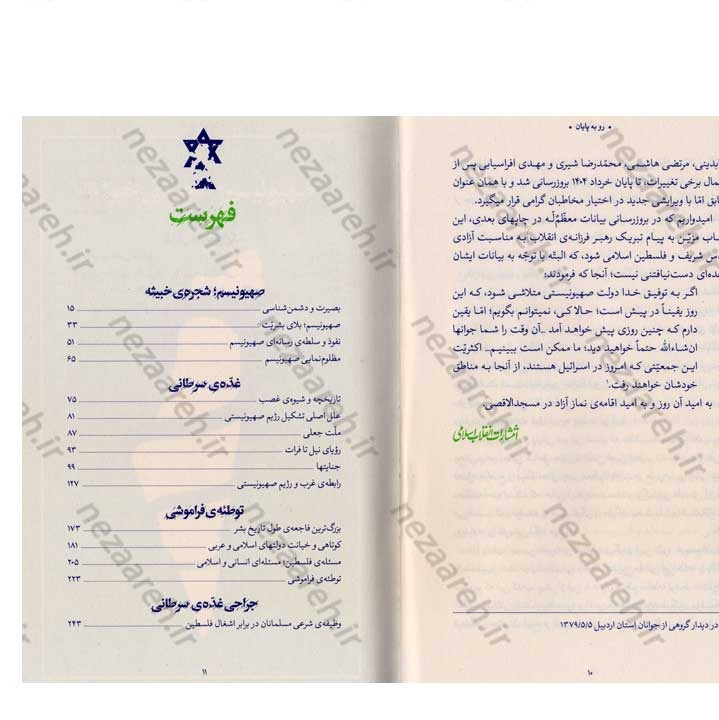 • رو به پایان •
مرتضی هاشمی، محمّدرضا شیری و مهدی افراسیابی پس از
برخی تغییرات، تا پایان خرداد ۱۴۰۴ بروزرسانی شد و با همان عنوان
امّا با ویرایشی جدید در اختیار مخاطبان گرامی قرار میگیرد.
امیدواریم که در بروزرسانی بیانات معظّم‌لَه در چاپهای بعدی، این
مزیّن به پیام تبریک رهبر فرزانه‌ی انقلاب به مناسبت آزادی
شریف و فلسطین اسلامی شود، که البتّه با توجّه به بیانات ایشان
دست‌نیافتنی نیست؛ آنجا که فرمودند:
اگر به توفیق خدا دولت صهیونیستی متلاشی شود، که این
روز یقیناً در پیش است؛ حالا کی، نمیتوانم بگویم؛ امّا یقین
دارم که چنین روزی پیش خواهد آمد _آن وقت را شما جوانها
ان‌شاءالله حتماً خواهید دید؛ ما ممکن است ببینیم_ اکثریّت
این جمعیّتی که امروز در اسرائیل هستند، از آنجا به مناطق
خودشان خواهند رفت.۱
به امید آن روز و به امید اقامه‌ی نماز آزاد در مسجدالاقصیٰ.
انتشارات انقلاب اسلامی
در دیدار گروهی از جوانان استان اردبیل ۱۳۷۹/۵/۵
۱۰
فهرست
صهیونیسم؛ شجره‌ی خبیثه
بصیرت و دشمن‌شناسی ۱۵
صهیونیسم؛ بلای بشریّت ۳۳
نفوذ و سلطه‌ی رسانه‌ای صهیونیسم ۵۱
مظلوم‌نمایی صهیونیسم ۶۵
غدّه‌ی سرطانی
تاریخچه و شیوه‌ی غصب ۷۵
علل اصلی تشکیل رژیم صهیونیستی ۸۱
ملّت جعلی ۸۷
رؤیای نیل تا فرات ۹۳
جنایتها ۹۹
رابطه‌ی غرب و رژیم صهیونیستی ۱۲۷
توطئه‌ی فراموشی
بزرگ‌ترین فاجعه‌ی طول تاریخ بشر ۱۷۳
کوتاهی و خیانت دولتهای اسلامی و عربی ۱۸۱
مسئله‌ی فلسطین؛ مسئله‌ای انسانی و اسلامی ۲۰۵
توطئه‌ی فراموشی ۲۲۳
جراحی غدّه‌ی سرطانی
وظیفه‌ی شرعی مسلمانان در برابر اشغال فلسطین ۲۴۳
۱۱
nezaareh.ir